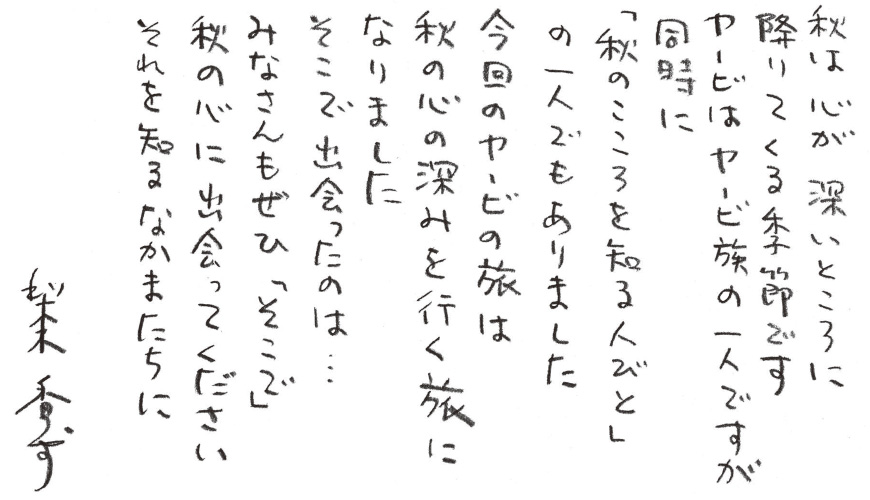 秋は心が深いところに
降りてくる季節です
ヤービはヤービ族の一人ですが
同時に
「秋のこころを知る人びと」
の一人でもありました
今回のヤービの旅は
秋の心の深みを行く旅に
なりました
そこで出会ったのは…
みなさんもぜひ「そこで」
秋の心に出会ってください
それを知るなかまたちに
梨木香歩